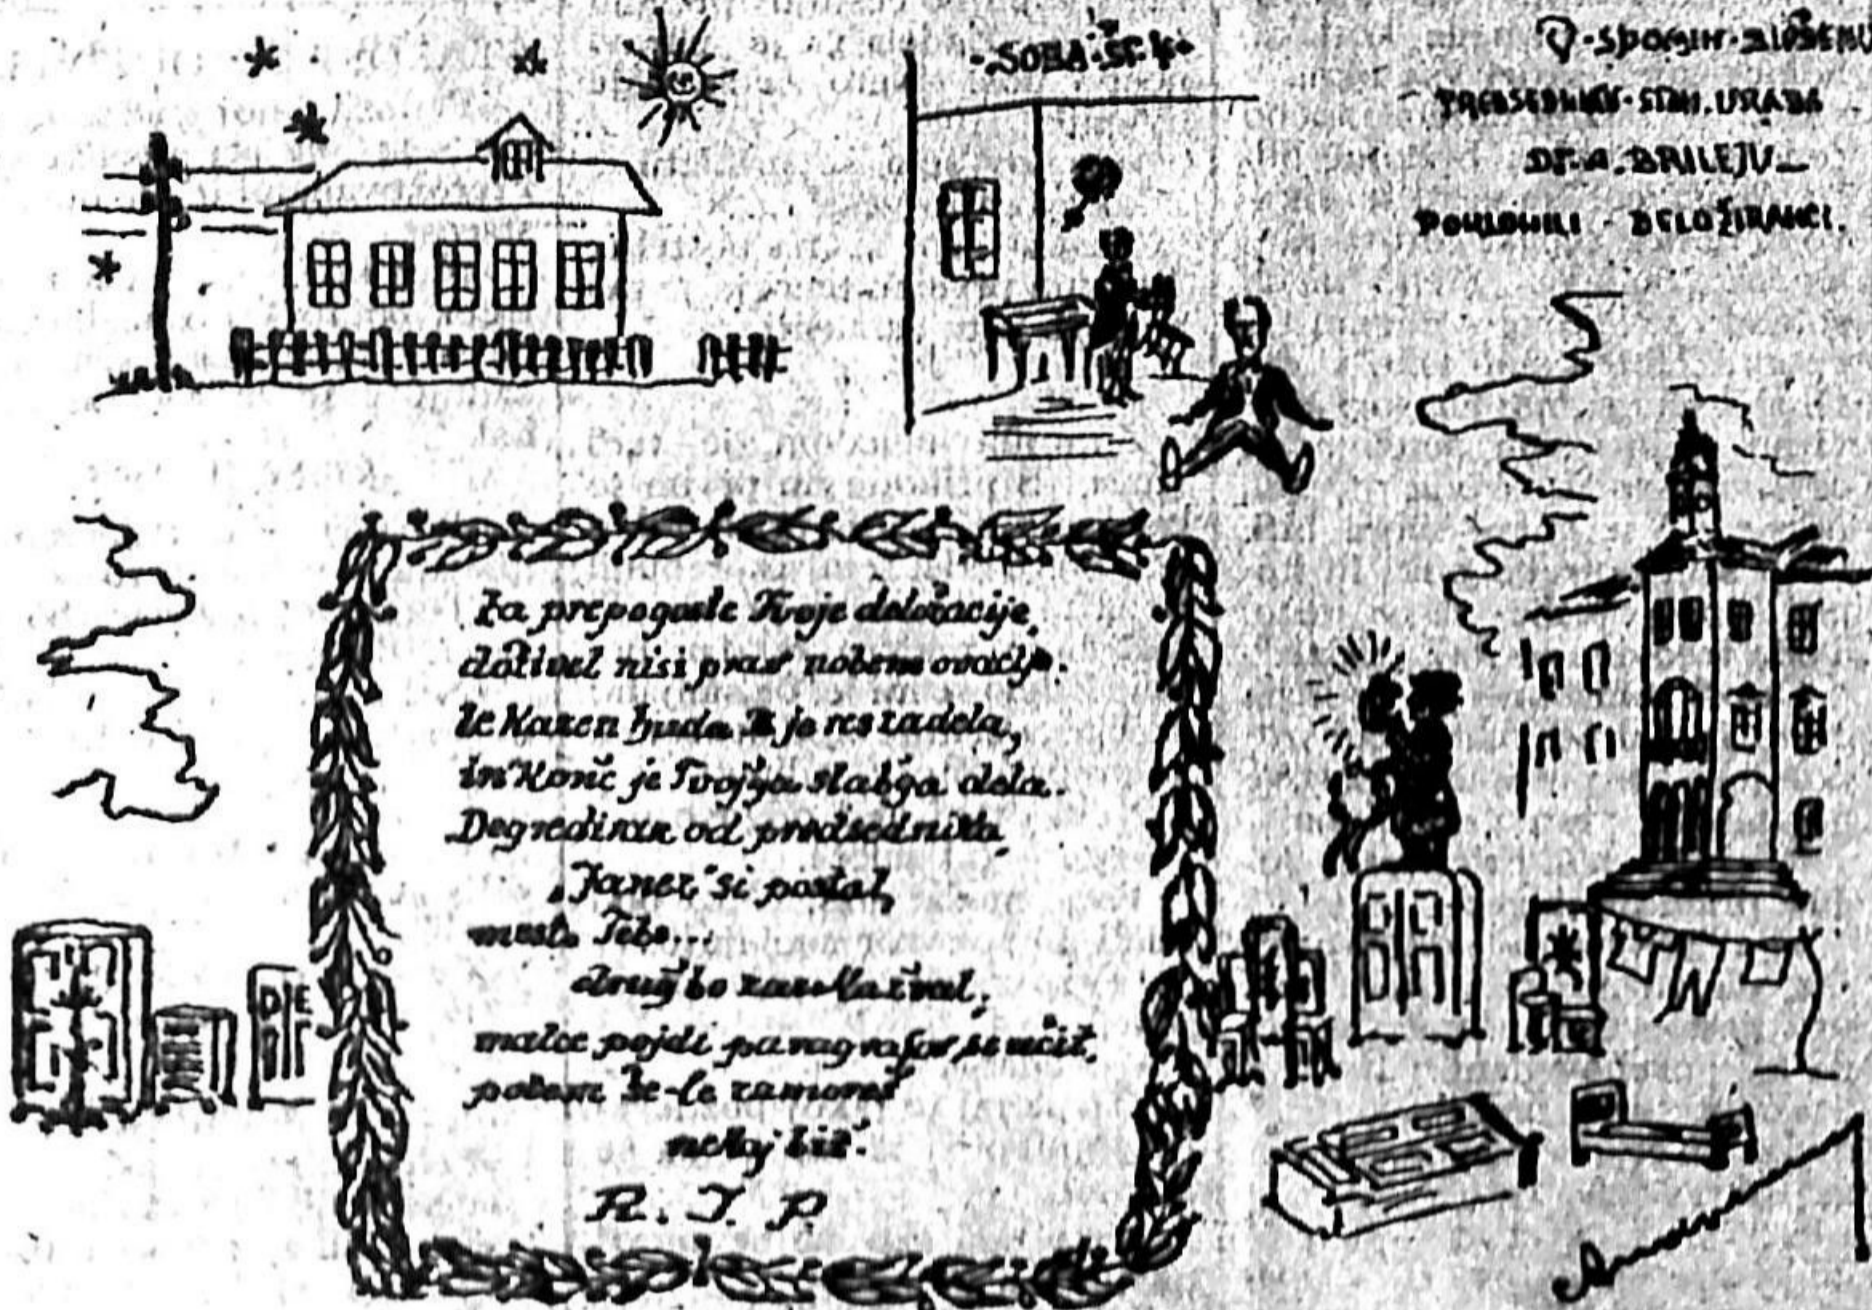 SOBA ŠT. 4.
V SPOMIN
PREDSEDNIKU STAN. URADA
Dr. A. BRILEJU —
POKLONILI - DELOŽIRANCI.
Za prepogoste Tvoje deložacije,
doživel nisi prav nobene ovacije.
Le kazen huda Te je res zadela,
in konc je Tvojga slabga dela.
Degradiran od predsednika,
"Janez" si postal,
mesto Tebe...
drug bo zaukazval,
malce pojdi paragrafov se učit,
potem še-le zamoreš
nekaj bit.
R. I. P.